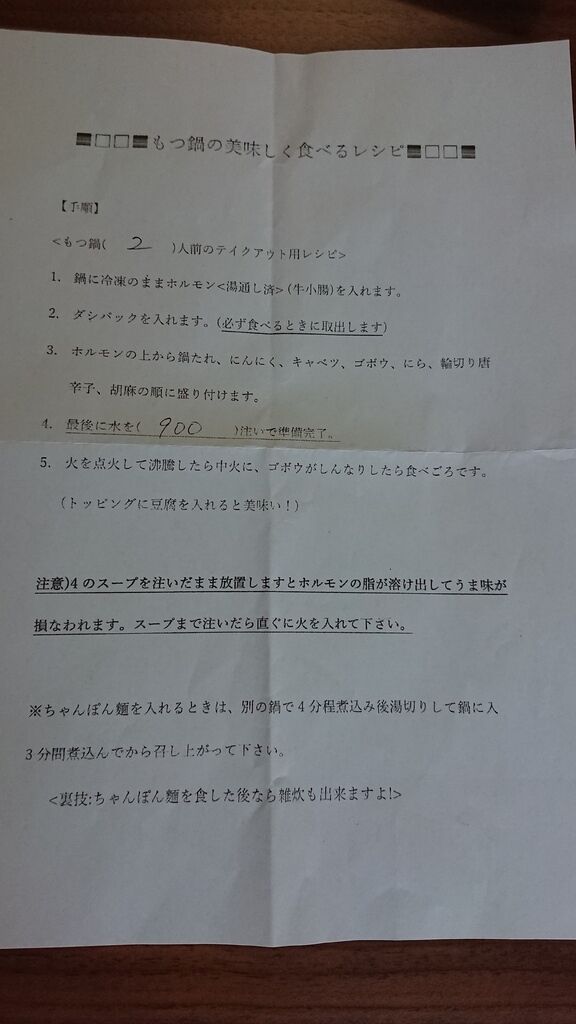 ■□□■もつ鍋の美味しく食べるレシピ■□□■
【手順】
<もつ鍋( 2 )人前のテイクアウト用レシピ>
1. 鍋に冷凍のままホルモン<湯通し済>(牛小腸)を入れます。
2. ダシパックを入れます。(必ず食べるときに取出します)
3. ホルモンの上から鍋たれ、にんにく、キャベツ、ゴボウ、にら、輪切り唐
辛子、胡麻の順に盛り付けます。
4. 最後に水を( 900 )注いで準備完了。
5. 火を点火して沸騰したら中火に、ゴボウがしんなりしたら食べごろです。
(トッピングに豆腐を入れると美味い！)
注意)4のスープを注いだまま放置しますとホルモンの脂が溶け出してうま味が
損なわれます。スープまで注いだら直ぐに火を入れて下さい。
※ちゃんぽん麺を入れるときは、別の鍋で4分程煮込み後湯切りして鍋に入
3分間煮込んでから召し上がって下さい。
<裏技:ちゃんぽん麺を食した後なら雑炊も出来ますよ!>